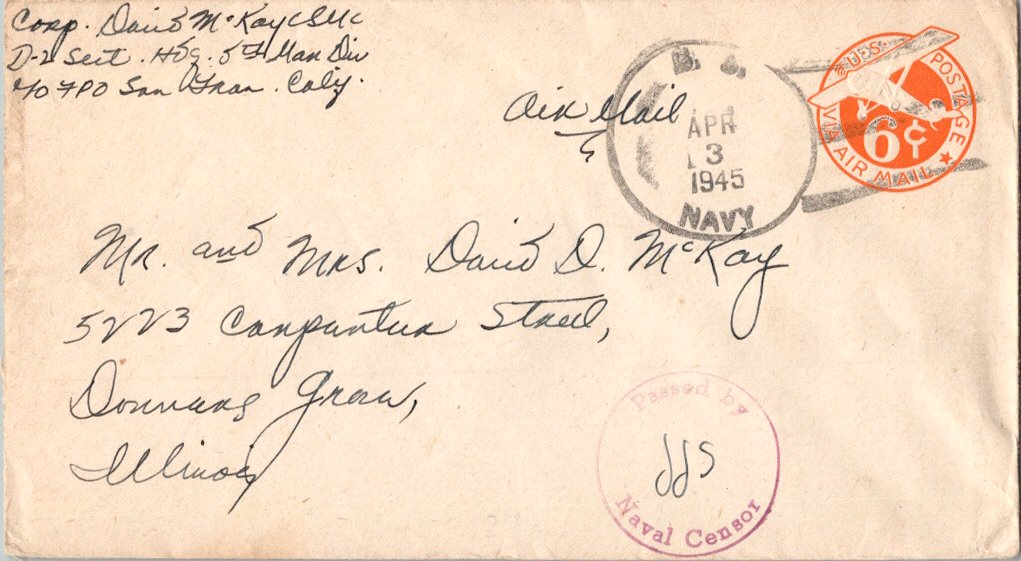 Corp. David McKay USMC
D-2 Sect. Hdq. 5th Mar Div
c/o FPO San Fran. Calif.
Air Mail
U.S.
APR
3
1945
NAVY
U.S. POSTAGE
6¢
VIA AIR MAIL
Mr. and Mrs. David D. McKay
5223 Carpenter Street,
Downers Grove,
Illinois
Passed by
JJS
Naval Censor